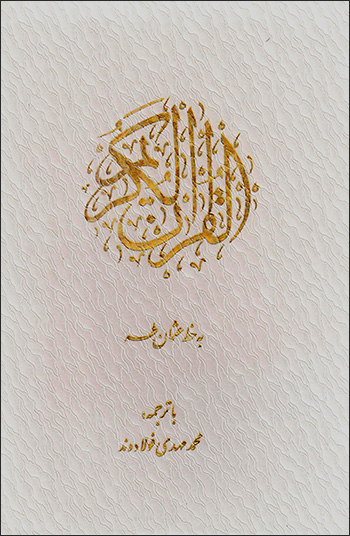 القرآن الكريم
به خط عثمان طه
با ترجمه
محمد مهدی فولادوند